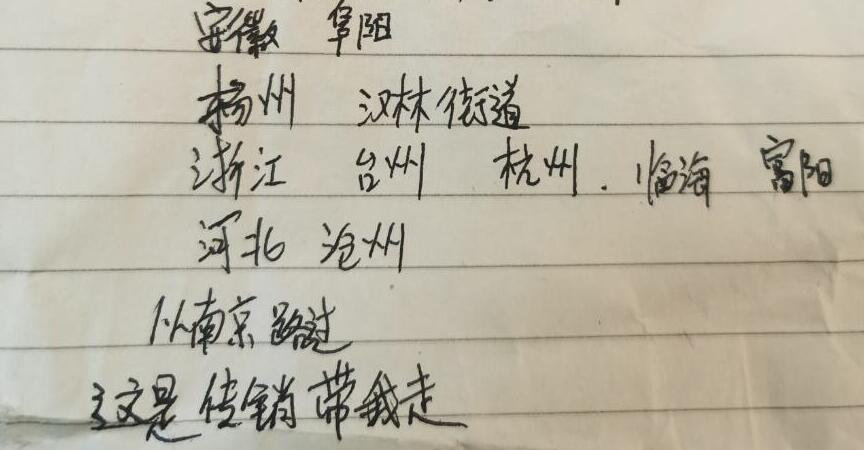 安徽 阜阳
扬州 汉林街道
浙江 台州 杭州. 临海 富阳
河北 沧州
从南京路过
这是传销带我走